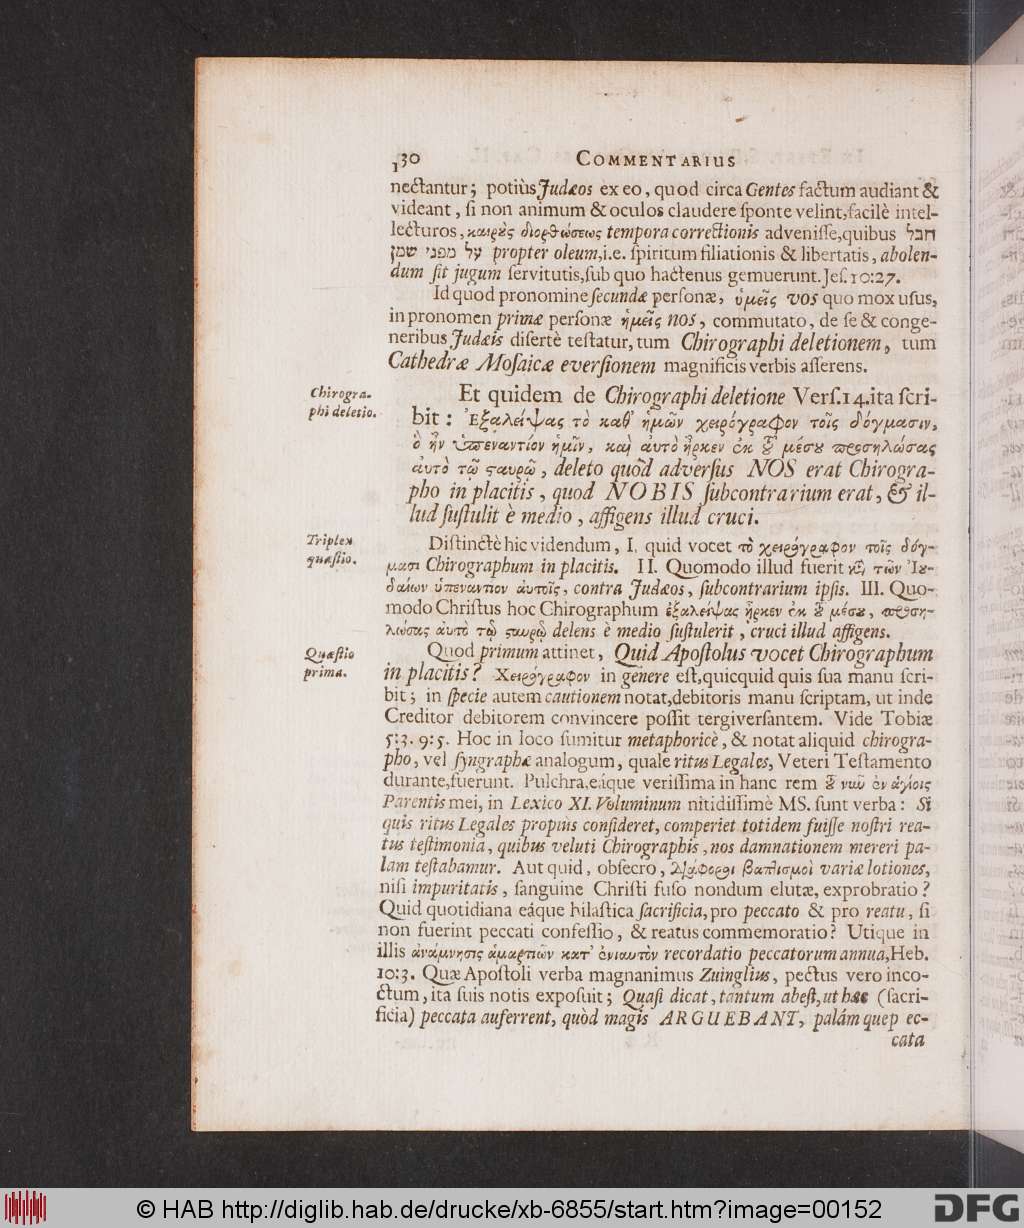 130 COMMENTARIUS
nectantur; potiùs Judæos ex eo, quod circa Gentes factum audiant &
videant, si non animum & oculos claudere sponte velint, facilè intel-
lecturos, καιρὸς διορθώσεως tempora correctionis advenisse, quibus חבל
על מפני שמן propter oleum, i.e. spiritum filiationis & libertatis, abolen-
dum sit jugum servitutis, sub quo hactenus gemuerunt. Jes. 10:27.
Id quod pronomine secundæ personæ, ὑμεῖς vos quo mox usus,
in pronomen primæ personæ ἡμεῖς nos, commutato, de se & conge-
neribus Judæis disertè testatur, tum Chirographi deletionem, tum
Cathedræ Mosaicæ eversionem magnificis verbis asserens.
Chirogra-
phi deletio.
Et quidem de Chirographi deletione Vers. 14. ita scri-
bit: Ἐξαλείψας τὸ καθ' ἡμῶν χειρόγραφον τοῖς δόγμασιν,
ὃ ἦν ὑπεναντίον ἡμῖν, καὶ αὐτὸ ἦρκεν ἐκ τοῦ μέσου προσηλώσας
αὐτὸ τῷ σταυρῷ, deleto quòd adversus NOS erat Chirogra-
pho in placitis, quod NOBIS subcontrarium erat, & il-
lud sustulit è medio, affigens illud cruci.
Triplex
quæstio.
Distinctè hic videndum, I. quid vocet τὸ χειρόγραφον τοῖς δόγ-
μασι Chirographum in placitis. II. Quomodo illud fuerit κατὰ τῶν Ἰου-
δαίων ὑπεναντίον αὐτοῖς, contra Judæos, subcontrarium ipsis. III. Quo-
modo Christus hoc Chirographum ἐξαλείψας ἦρκεν ἐκ τοῦ μέσου, προση-
λώσας αὐτὸ τῷ σταυρῷ delens è medio sustulerit, cruci illud affigens.
Quæstio
prima.
Quod primum attinet, Quid Apostolus vocet Chirographum
in placitis? Χειρόγραφον in genere est, quicquid quis sua manu scri-
bit; in specie autem cautionem notat, debitoris manu scriptam, ut inde
Creditor debitorem convincere possit tergiversantem. Vide Tobiæ
5:3. 9:5. Hoc in loco sumitur metaphoricè, & notat aliquid chirogra-
pho, vel syngraphæ analogum, quale ritus Legales, Veteri Testamento
durante, fuerunt. Pulchra, eáque verissima in hanc rem τοῦ νῦν ἐν ἁγίοις
Parentis mei, in Lexico XI. Voluminum nitidissimè MS. sunt verba: Si
quis ritus Legales propiùs consideret, comperiet totidem fuisse nostri rea-
tus testimonia, quibus veluti Chirographis, nos damnationem mereri pa-
lam testabamur. Aut quid, obsecro, διάφοροι βαπτισμοὶ variæ lotiones,
nisi impuritatis, sanguine Christi fuso nondum elutæ, exprobratio?
Quid quotidiana eáque hilastica sacrificia, pro peccato & pro reatu, si
non fuerint peccati confessio, & reatus commemoratio? Utique in
illis ἀνάμνησις ἁμαρτιῶν κατ' ἐνιαυτὸν recordatio peccatorum annua, Heb.
10:3. Quæ Apostoli verba magnanimus Zuinglius, pectus vero inco-
ctum, ita suis notis exposuit; Quasi dicat, tantum abest, ut hæc (sacri-
ficia) peccata auferrent, quòd magis ARGUEBANT, palám quep ec-
cata
© HAB http://diglib.hab.de/drucke/xb-6855/start.htm?image=00152
DFG